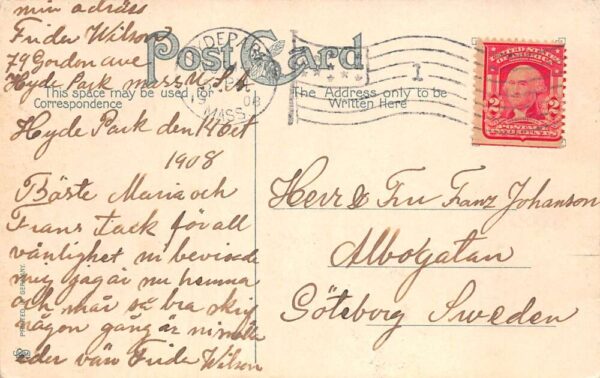 min adräss
Frida Wilson
79 Gordon ave
Hyde Park mass U.S.A.
Post Card
HYDE PARK
08
MASS.
1
UNITED STATES
OF AMERICA
2 2
POSTAGE
TWO CENTS
This space may be used for
Correspondence
The Address only to be
Written Here
Hyde Park den 14 Oct
1908
Bäste Maria och
Frans tack för all
vänlighet ni bevisade
mig jag är nu hemma
och mår så bra skrif
någon gång är ni snälla
eder vän Frida Wilson
Herr & Fru Franz Johanson
Albogatan
Göteborg Sweden
PRINTED IN GERMANY